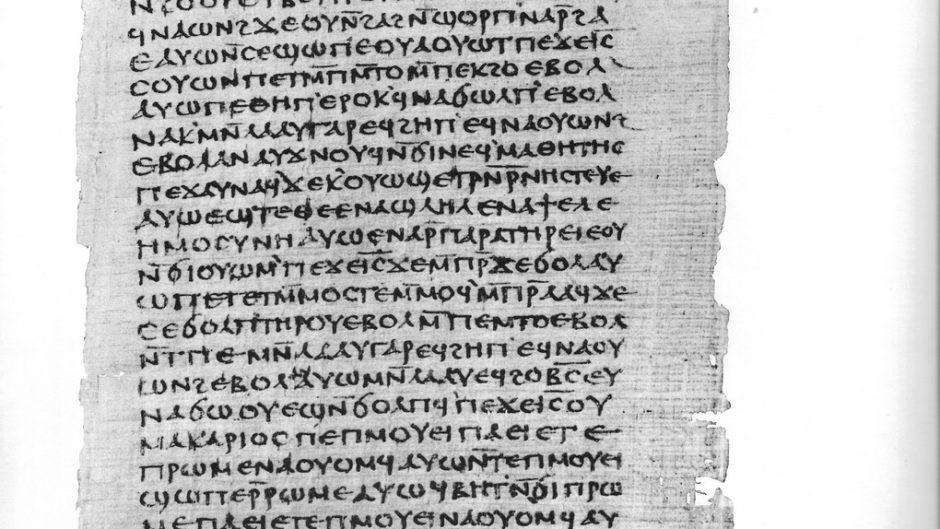 ϥⲛⲁⲱⲛϩϫⲉⲟⲩⲛ̄ϩⲁϩⲛ̄ϣⲟⲣⲡⲛⲁⲣ̄ϩⲁ
ⲉⲁⲩⲱⲛ̄ⲥⲉϣⲱⲡⲉⲟⲩⲁⲟⲩⲱⲧⲡⲉϫⲉⲓ̄ⲥ̄
ⲥⲟⲩⲱⲛⲡⲉⲧⲙ̄ⲡⲙ̄ⲧⲟⲙ̄ⲡⲉⲕϩⲟⲉⲃⲟⲗ
ⲁⲩⲱⲡⲉⲑⲏⲡ'ⲉⲣⲟⲕϥⲛⲁϭⲱⲗⲡ'ⲉⲃⲟⲗ
ⲛⲁⲕ'ⲙⲛ̄ⲗⲁⲁⲩⲅⲁⲣⲉϥϩⲏⲡ'ⲉϥⲛⲁⲟⲩⲱⲛϩ
ⲉⲃⲟⲗⲁⲛⲁⲩϫⲛⲟⲩϥⲛ̄ϭⲓⲛⲉϥ'ⲙⲁⲑⲏⲧⲏⲥ
ⲡⲉϫⲁⲩⲛⲁϥϫⲉⲕⲟⲩⲱϣⲉⲧⲣⲛ̄ⲣ̄ⲛⲏⲥⲧⲉⲩⲉ
ⲁⲩⲱⲉϣⲧⲉⲑⲉⲉⲛⲁϣⲗⲏⲗⲉⲛⲁϯⲉⲗⲉ
ⲏⲙⲟⲥⲩⲛⲏⲁⲩⲱⲉⲛⲁⲣ̄ⲡⲁⲣⲁⲧⲏⲣⲉⲓⲉⲟⲩ
ⲛ̄ϭⲓⲟⲩⲱⲙ'ⲡⲉϫⲉⲓ̄ⲥ̄ϫⲉⲙⲡⲣ̄ϫⲉϭⲟⲗⲁⲩ
ⲱⲡⲉⲧⲉⲧⲙ̄ⲙⲟⲥⲧⲉⲙ̄ⲙⲟϥ'ⲙ̄ⲡⲣ̄ⲁⲁϥϫⲉ
ⲥⲉϭⲟⲗⲡ'ⲧⲏⲣⲟⲩⲉⲃⲟⲗⲙ̄ⲡⲉⲙⲧⲟⲉⲃⲟⲗ
ⲛ̄ⲧⲡⲉⲙⲛ̄ⲗⲁⲁⲩⲅⲁⲣⲉϥϩⲏⲡ'ⲉϥⲛⲁⲟⲩ
ⲱⲛϩⲉⲃⲟⲗⲁⲛⲁⲩⲱⲙⲛ̄ⲗⲁⲁⲩⲉϥϩⲟⲃ̄ⲥ̄ⲉⲩ
ⲛⲁϭⲱⲟⲩⲉϣⲛ̄ϭⲟⲗⲡϥ'ⲡⲉϫⲉⲓ̄ⲥ̄ⲟⲩ
ⲙⲁⲕⲁⲣⲓⲟⲥⲡⲉⲡⲙⲟⲩⲉⲓⲡⲁⲉⲓⲉⲧⲉ
ⲡⲣⲱⲙⲉⲛⲁⲟⲩⲟⲙϥⲁⲩⲱⲛ̄ⲧⲉⲡⲙⲟⲩⲉⲓ
ϣⲱⲡⲉⲣ̄ⲣⲱⲙⲉⲁⲩⲱϥⲃⲏⲧ'ⲛ̄ϭⲓⲡⲣⲱ
ⲙⲉⲡⲁⲉⲓⲉⲧⲉⲡⲙⲟⲩⲉⲓⲛⲁⲟⲩⲟⲙϥⲁⲩ